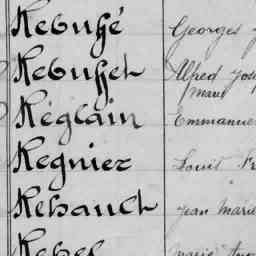 Rebuffé Georges J
Rebuffet Alfred Jose
Marie
Réglain Emmanue
Regnier Louis Fr
Rehault Jean Marie
Rebel Marie